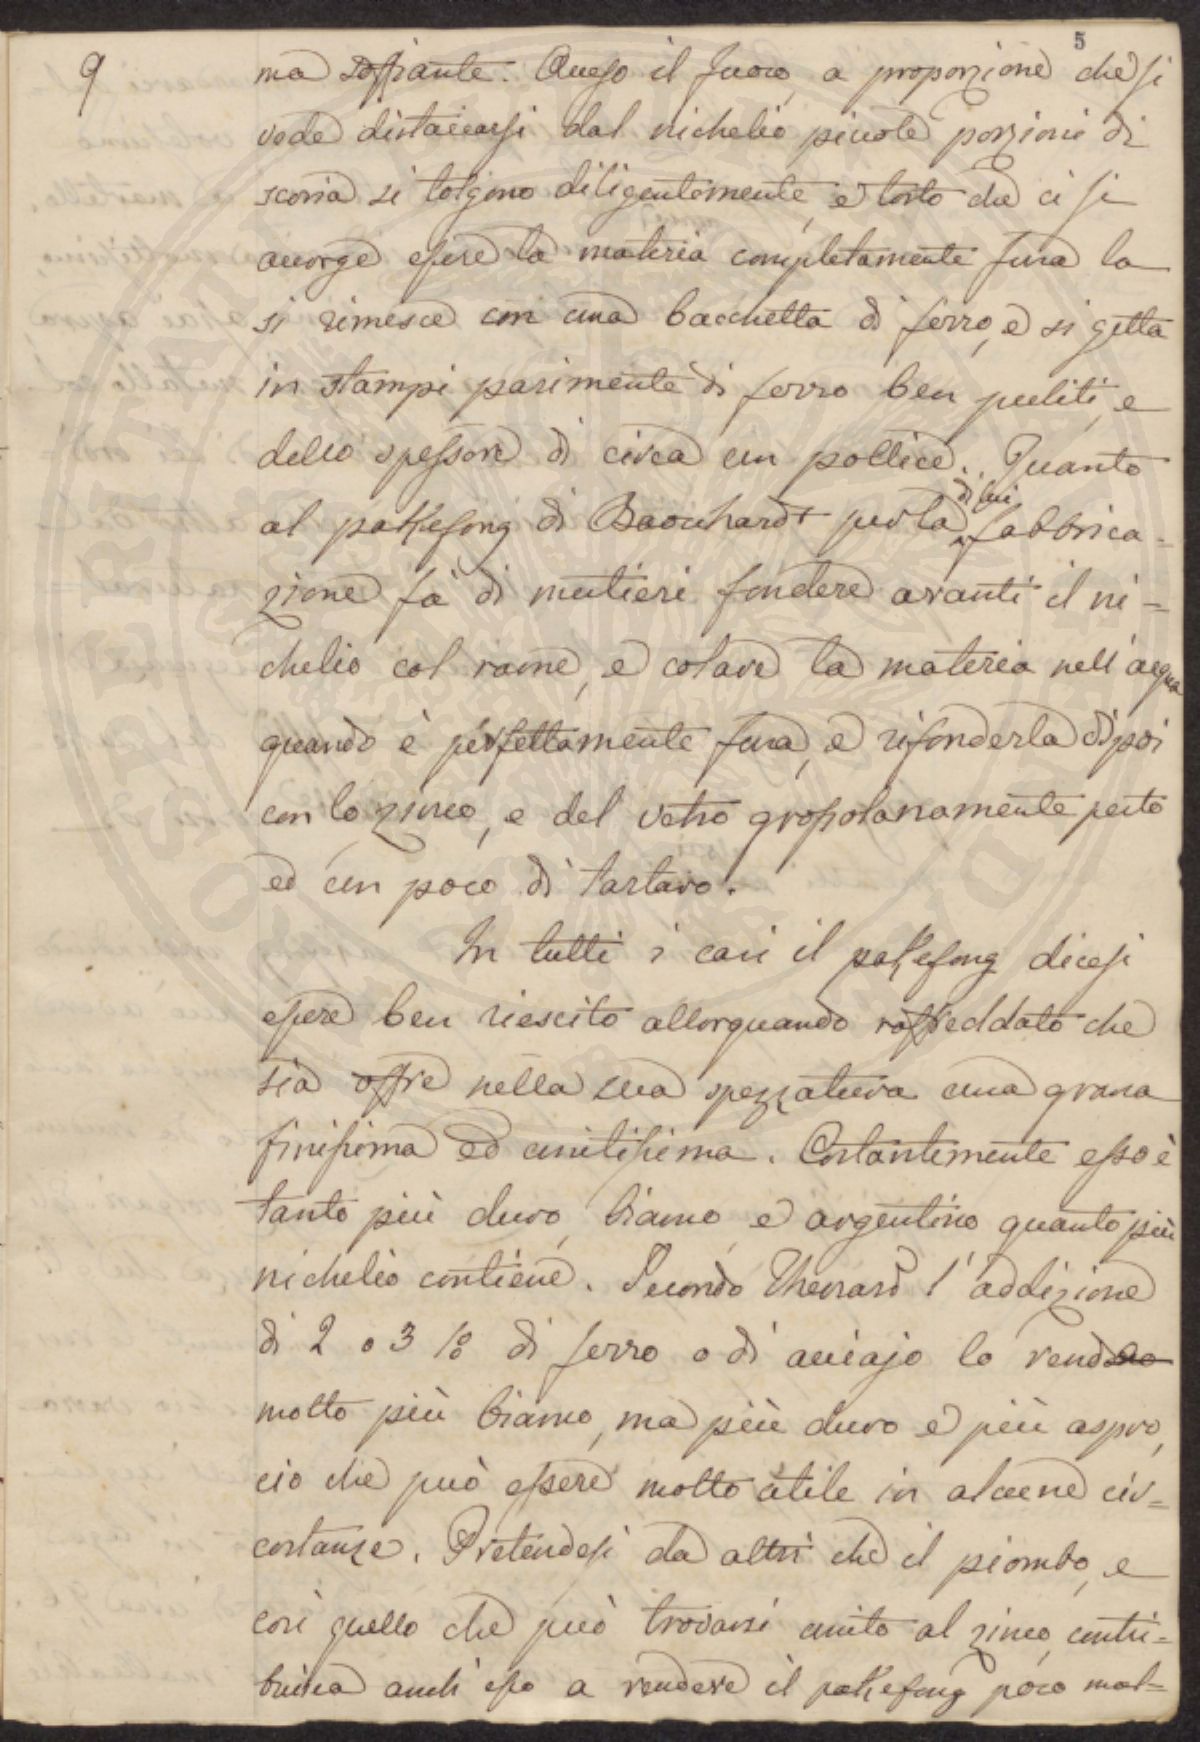 5
9
ma soffiante. Acceso il fuoco, a proporzione che si
vede distaccarsi dal nichelio piccole porzioni di
scoria si tolgono diligentemente, e tosto che ci si
accorge essere la materia completamente fusa la
si rimesce con una bacchetta di ferro, e si getta
in stampi parimente di ferro ben puliti, e
dello spessore di circa un pollice. Quanto
al pakfong di per la di lui fabbrica-
zione fà di mestieri fondere avanti il ni-
chelio col rame, e colare la materia nell'acqua
quando è perfettamente fusa, e rifonderla di poi
con lo zinco, e del vetro grossolanamente pesto
ed un poco di tartaro.
In tutti i casi il pakfong dicesi
essere ben riescito allorquando raffreddato che
sia offre nella sua spezzatura una grana
finissima ed unitissima. Costantemente esso è
tanto più duro, bianco, e argentino quanto più
nichelio contiene. Secondo Thenard l'addizione
di 2 o 3 % di ferro o di acciajo lo rende
molto più bianco, ma più duro e più aspro,
cio che può essere molto utile in alcune cir-
costanze. Pretendesi da altri che il piombo, e
così quello che può trovarsi unito al zinco, contri-
buisca anch'esso a rendere il pakfong poco mal-